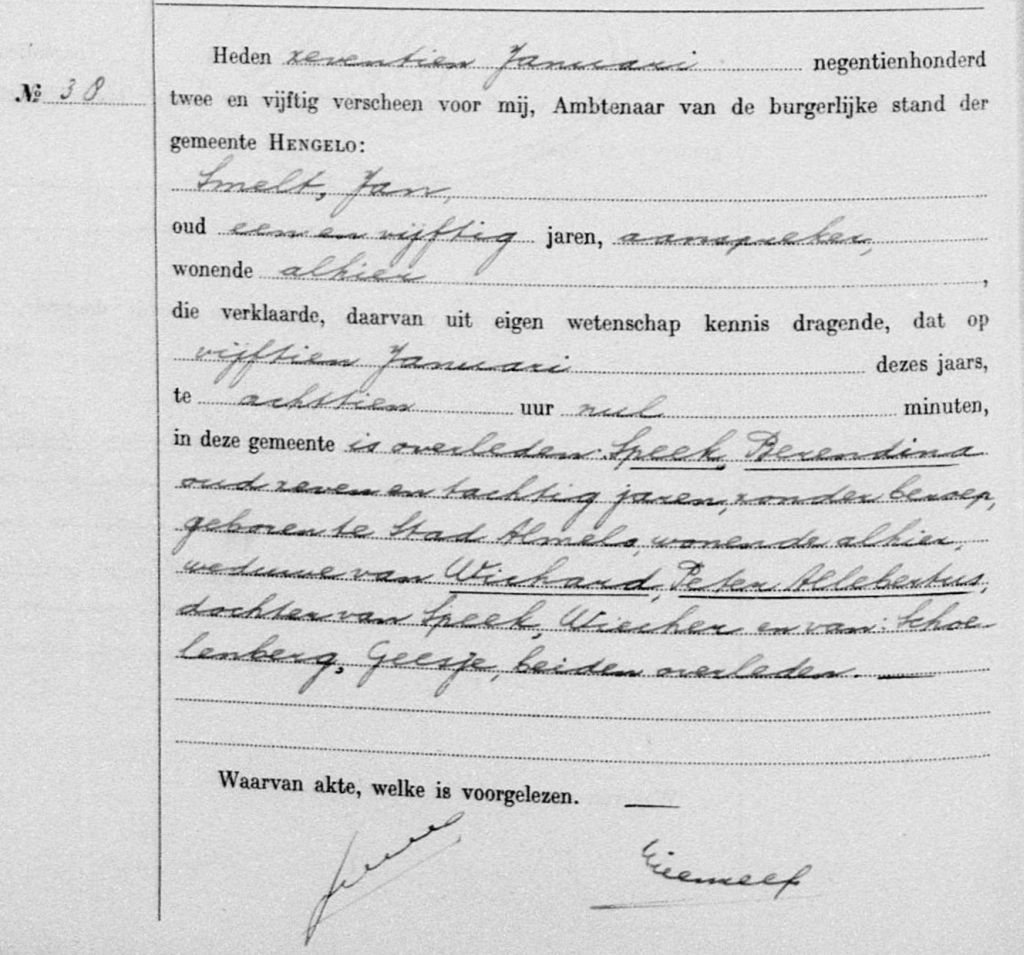 Heden zeventien Januari negentienhonderd
№ 38
twee en vijftig verscheen voor mij, Ambtenaar van de burgerlijke stand der
gemeente HENGELO:
Smelt, Jan,
oud een en vijftig jaren, aanspreker,
wonende alhier ,
die verklaarde, daarvan uit eigen wetenschap kennis dragende, dat op
vijftien Januari dezes jaars,
te achttien uur nul minuten,
in deze gemeente is overleden: Speek, Berendina
oud zeven en tachtig jaren, zonder beroep,
geboren te Stad Almelo, wonende alhier,
weduwe van Wichard, Peter Allebertus,
dochter van Speek, Wiecher en van: Schoe-
lenberg, Geesje, beiden overleden.
Waarvan akte, welke is voorgelezen.